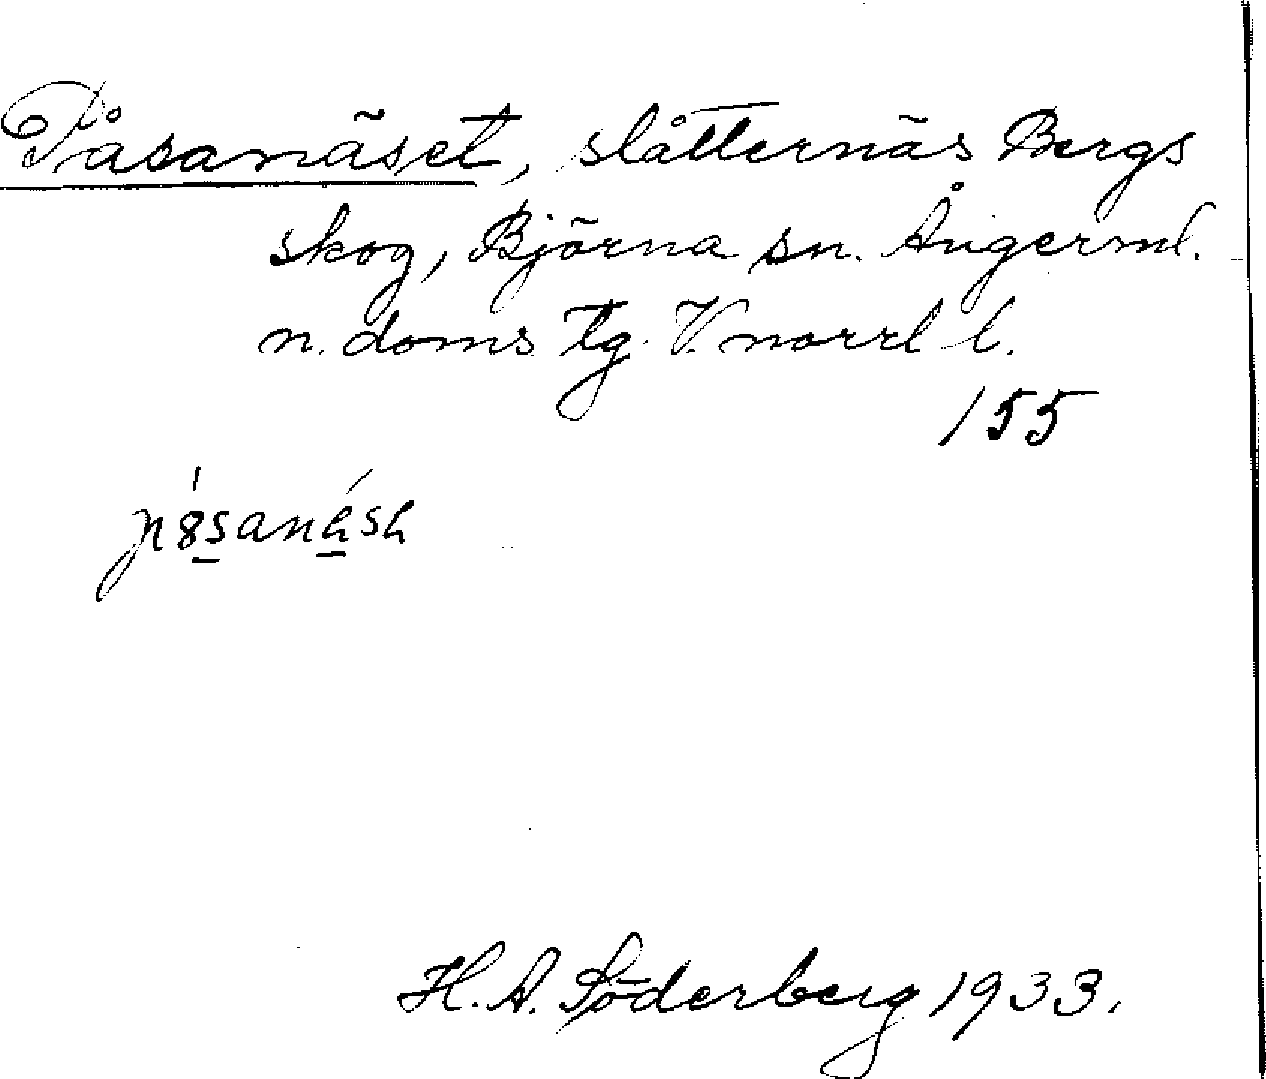 Påsanäset, slåtternäs Bergs
skog, Björna sn. Ångerml.
n. doms tg. V. norrl l.
155
H. A. Söderberg 1933.